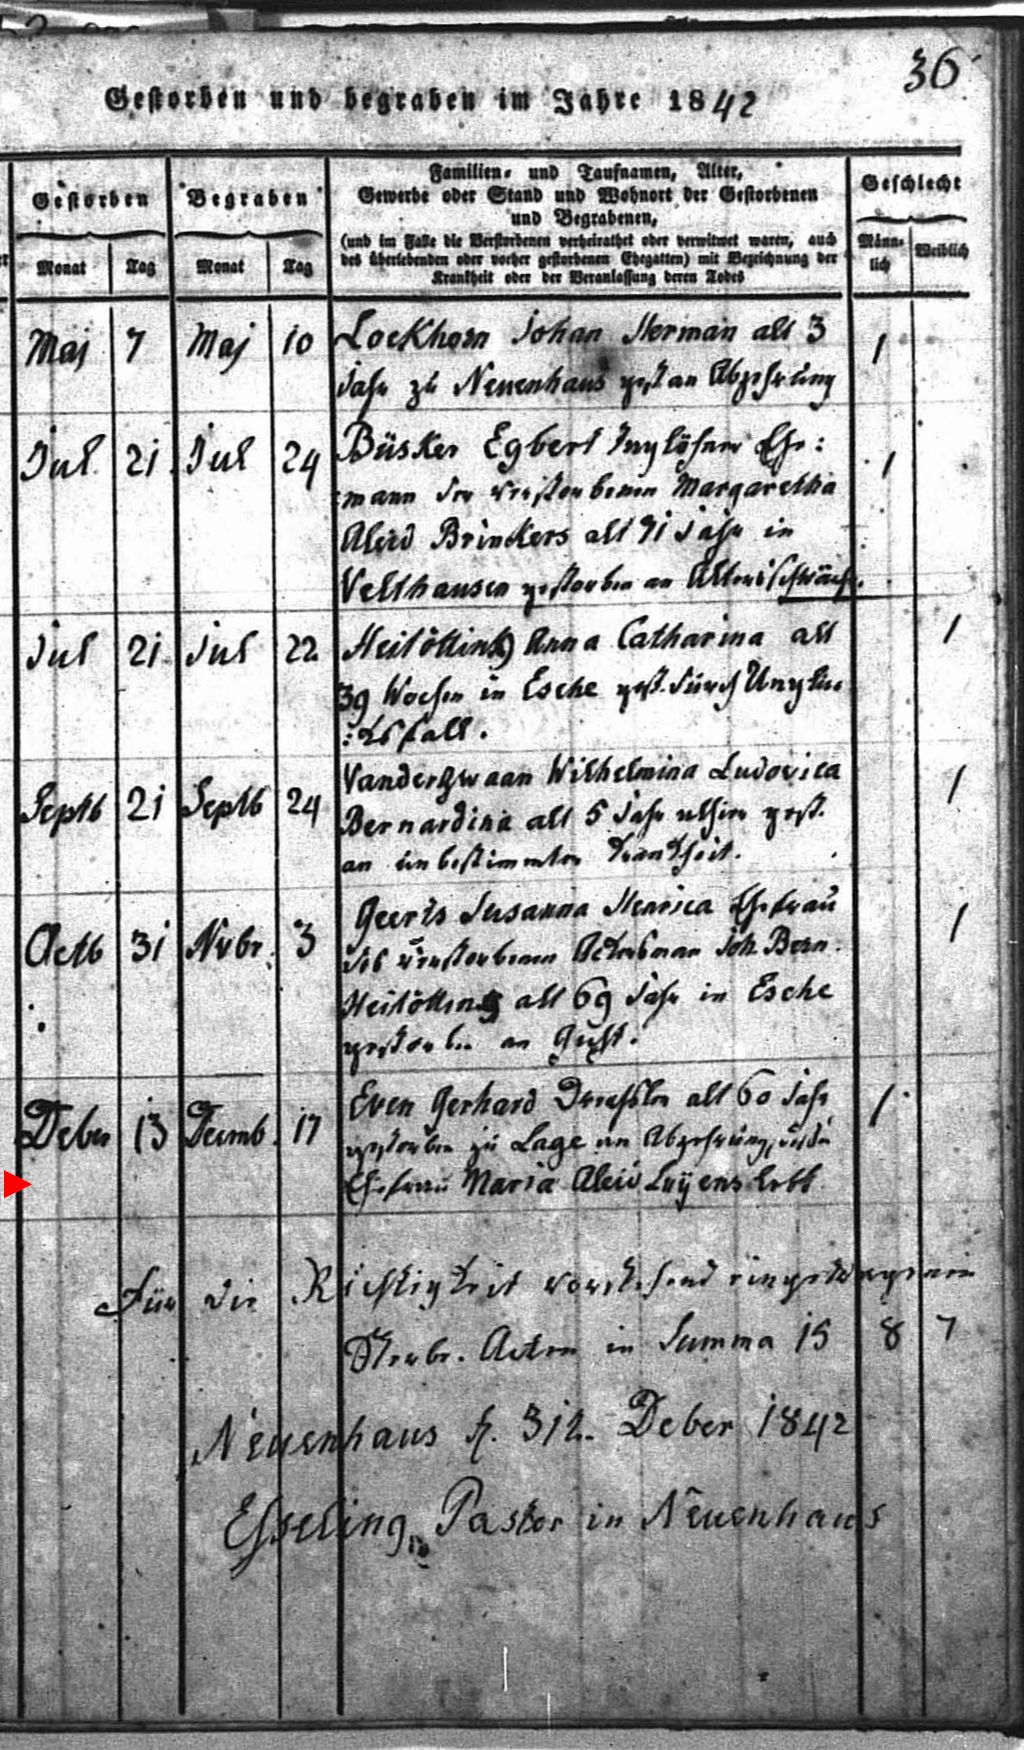 36
Gestorben und begraben im Jahre 1842
Gestorben
Begraben
Familien- und Taufnamen, Alter,
Gewerbe oder Stand und Wohnort der Gestorbenen
und Begrabenen,
(und im Falle die Verstorbenen verheirathet oder verwitwet waren, auch
des überlebenden oder vorher gestorbenen Ehegatten) mit Bezeichnung der
Krankheit oder der Veranlassung deren Todes
Geschlecht
Monat Tag Monat Tag
Männ-
lich
Weiblich
Maj 7 Maj 10 Lockhorn Johan Herman alt 3 1
Jahr zu Neuenhaus gest an Abzehrung
Jul 21 Jul 24 Büsker Egbert Ehe: 1
mann der verstorbenen Margaretha
Aleid Brinkers alt 71 Jahr in
Velthausen gestorben an Altersschwäche.
Jul 21 Jul 22 Heilöttink Anna Catharina alt 1
39 Wochen in Esche gest. durch Unglü
:cksfall.
Septb 21 Septb 24 Vanderzwaan Wilhelmina Ludovica 1
Bernardina alt 5 Jahr gest.
an unbestimmter Krankheit.
Octb 31 Nvbr. 3 Geerts Susanna Henrica Ehefrau 1
des verstorbenen Ackersman Joh. Bern.
Heilöttink alt 69 Jahr in Esche
gestorben an Gicht.
Deber 13 Decmb. 17 Even Gerhard alt 60 Jahr 1
gestorben zu Lage an Abzehrung,
Ehefrau Maria Aleid Luÿens lebt
Für die Richtigkeit vorstehend eingetragenen
Sterbe. Acten in Summa 15 8 7
Neuenhaus d. 31t. Deber 1842
Esseling, Pastor in Neuenhaus